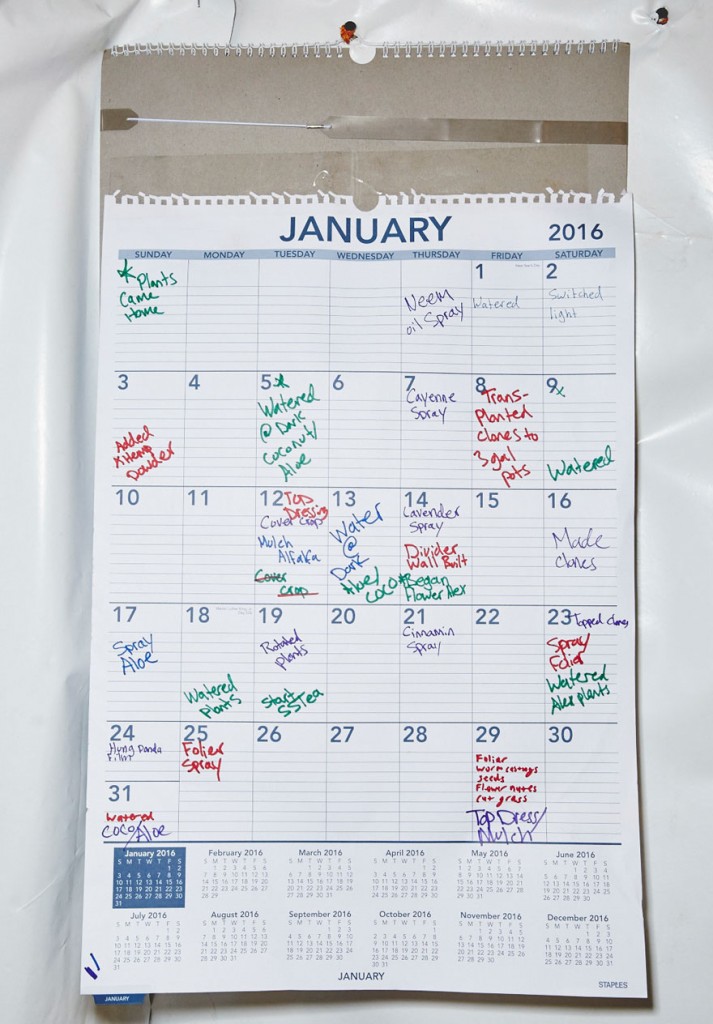 JANUARY 2016
SUNDAY MONDAY TUESDAY WEDNESDAY THURSDAY FRIDAY SATURDAY
* Plants
Came
Home
Neem
oil Spray
1
Watered
2
Switched
light
3
Added
Powder
4
5 *
Watered
@ Dark
Coconut/
Aloe
6
7
Cayenne
Spray
8
Trans-
Planted
clones to
3 gal
pots
9 x
Watered
10
11
12 Top
Dressing
Cover Crop
Mulch
Alfalfa
Cover
Crop
13
Water
@
Dark
Aloe/
COCO
14
Lavender
Spray
Divider
Wall Built
*Began
Flower Alex
15
16
Made
clones
17
Spray
Aloe
18
Watered
Plants
19
Rotated
plants
Start
SSTea
20
21
Cinnamin
Spray
22
23 Topped clones
Spray
Folier
Watered
Alex plants
24
Hung Panda
Film
25
Folier
Spray
26
27
28
29
Folier
worm castings
seeds
Flower nutes
cut grass
Top Dress/
Mulch
30
31
Watered
COCO/Aloe
January 2016 February 2016 March 2016 April 2016 May 2016 June 2016
S M T W T F S S M T W T F S S M T W T F S S M T W T F S S M T W T F S S M T W T F S
1 2 1 2 3 4 5 6 1 2 3 4 5 1 2 1 2 3 4 5 6 7 1 2 3 4
3 4 5 6 7 8 9 7 8 9 10 11 12 13 6 7 8 9 10 11 12 3 4 5 6 7 8 9 8 9 10 11 12 13 14 5 6 7 8 9 10 11
10 11 12 13 14 15 16 14 15 16 17 18 19 20 13 14 15 16 17 18 19 10 11 12 13 14 15 16 15 16 17 18 19 20 21 12 13 14 15 16 17 18
17 18 19 20 21 22 23 21 22 23 24 25 26 27 20 21 22 23 24 25 26 17 18 19 20 21 22 23 22 23 24 25 26 27 28 19 20 21 22 23 24 25
24 25 26 27 28 29 30 28 29 27 28 29 30 31 24 25 26 27 28 29 30 29 30 31 26 27 28 29 30
31
July 2016 August 2016 September 2016 October 2016 November 2016 December 2016
S M T W T F S S M T W T F S S M T W T F S S M T W T F S S M T W T F S S M T W T F S
1 2 1 2 3 4 5 6 1 2 3 1 1 2 3 4 5 1 2 3
3 4 5 6 7 8 9 7 8 9 10 11 12 13 4 5 6 7 8 9 10 2 3 4 5 6 7 8 6 7 8 9 10 11 12 4 5 6 7 8 9 10
10 11 12 13 14 15 16 14 15 16 17 18 19 20 11 12 13 14 15 16 17 9 10 11 12 13 14 15 13 14 15 16 17 18 19 11 12 13 14 15 16 17
17 18 19 20 21 22 23 21 22 23 24 25 26 27 18 19 20 21 22 23 24 16 17 18 19 20 21 22 20 21 22 23 24 25 26 18 19 20 21 22 23 24
24 25 26 27 28 29 30 28 29 30 31 25 26 27 28 29 30 23 24 25 26 27 28 29 27 28 29 30 25 26 27 28 29 30 31
31 30 31
JANUARY
STAPLES
JANUARY